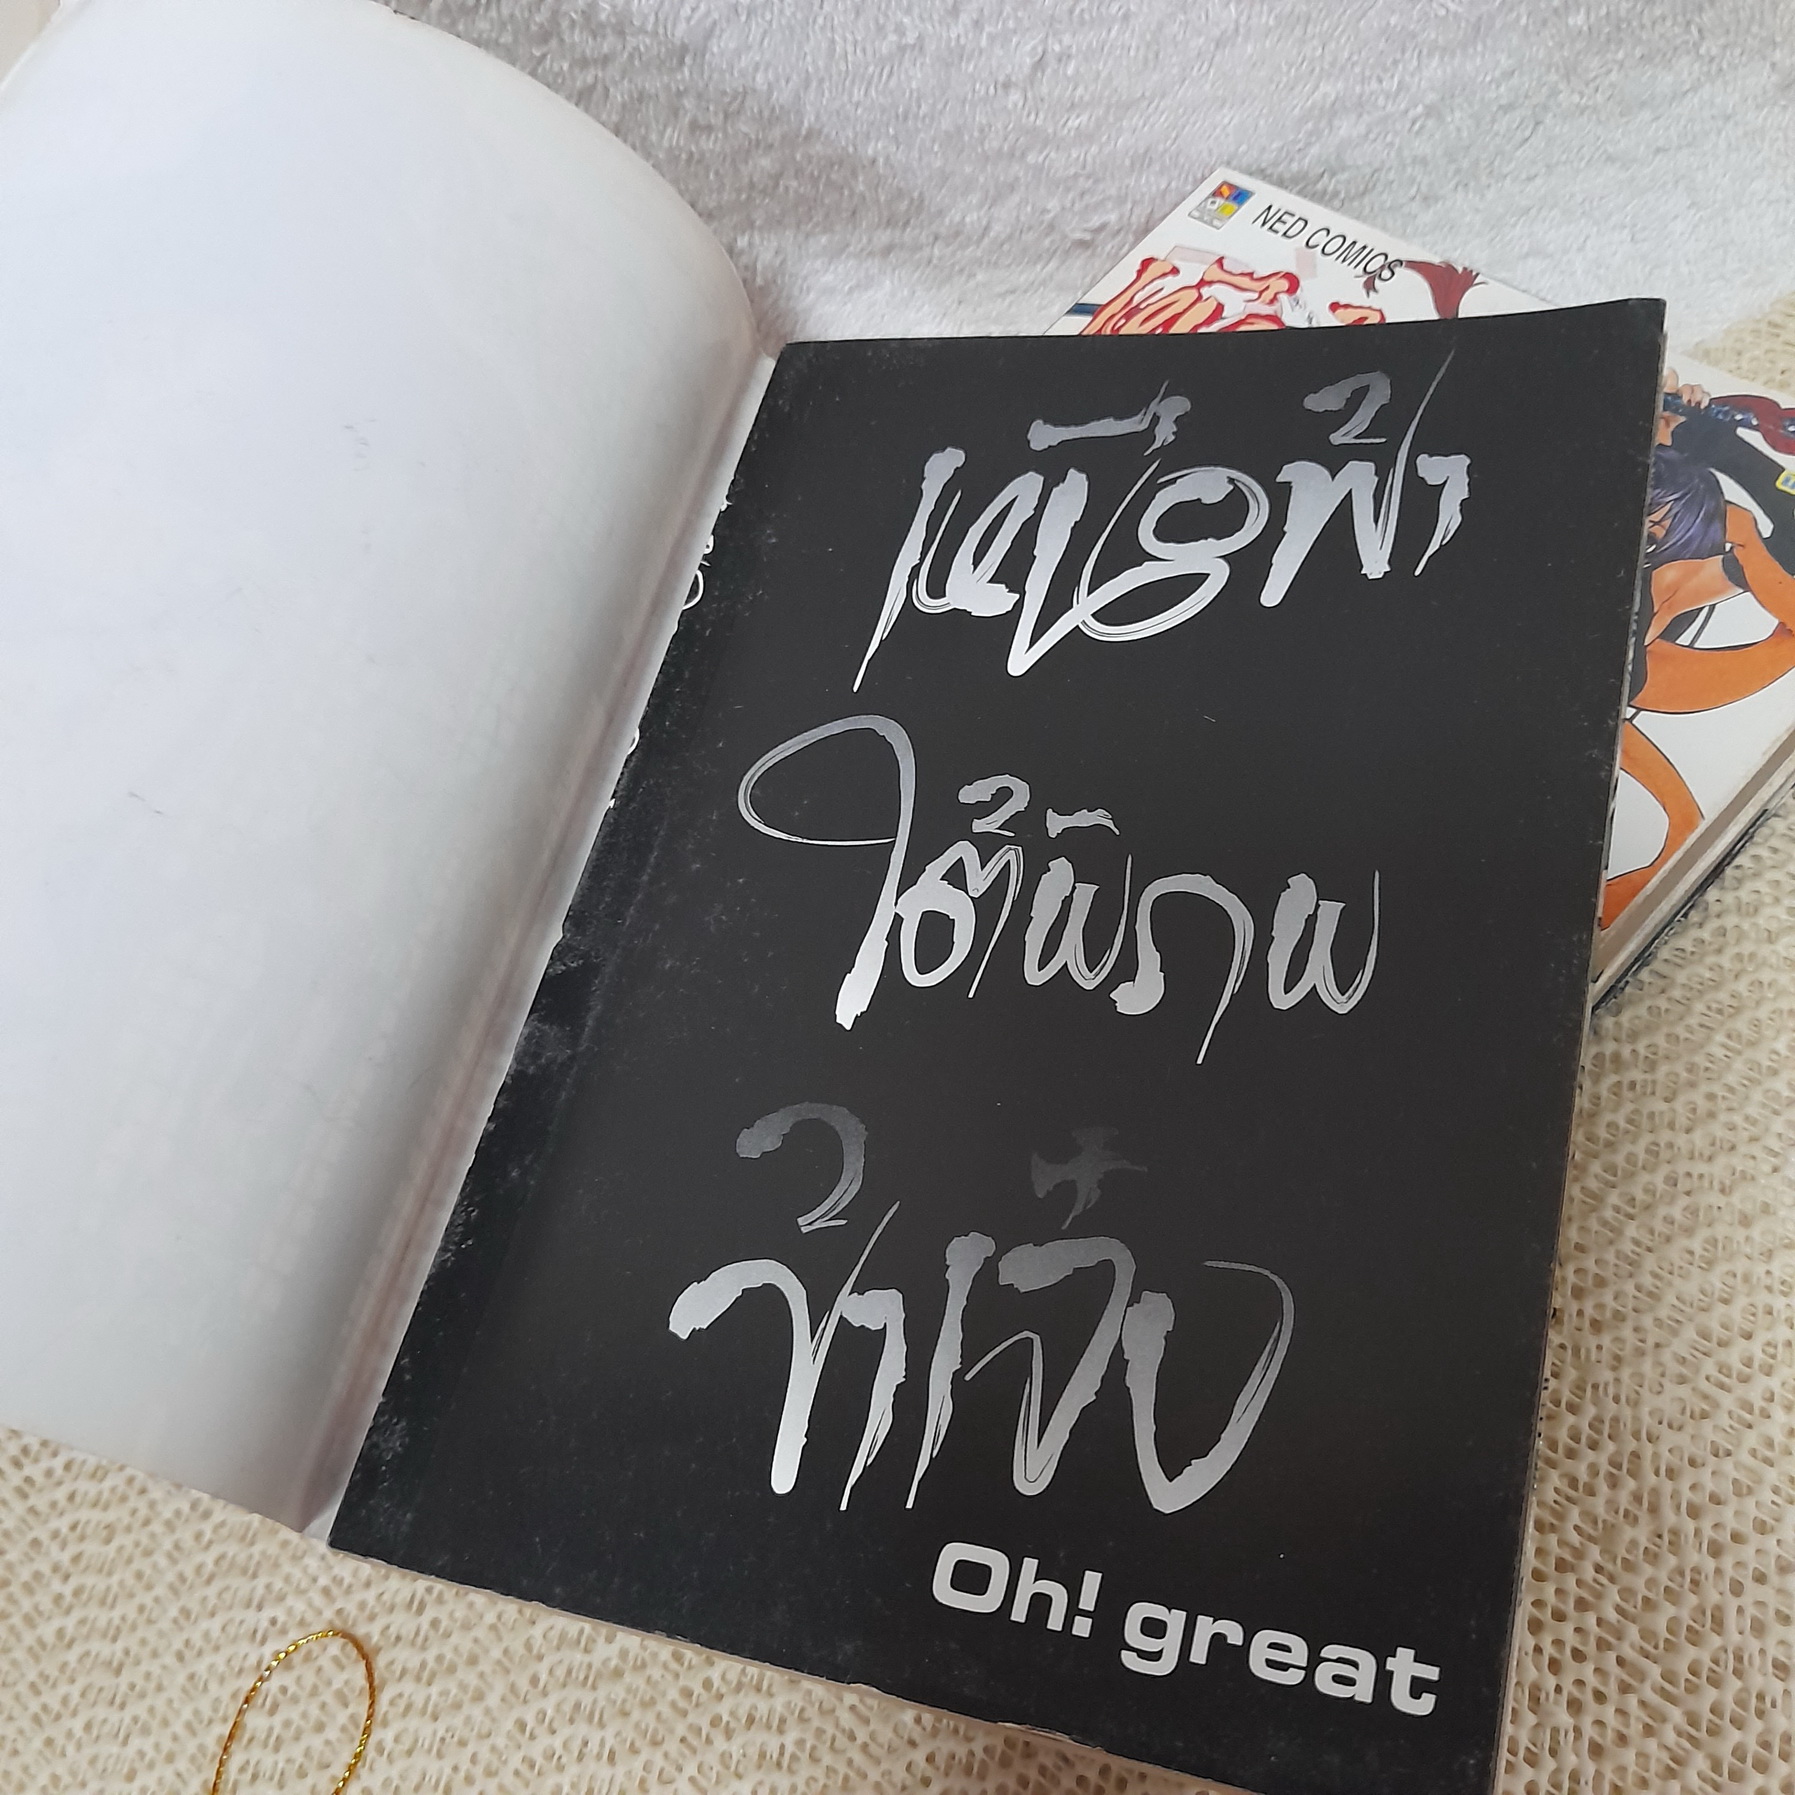 NED COMICS
เหนือฟ้า
ใต้พิภพ
ข้าเจ๋ง
Oh! great